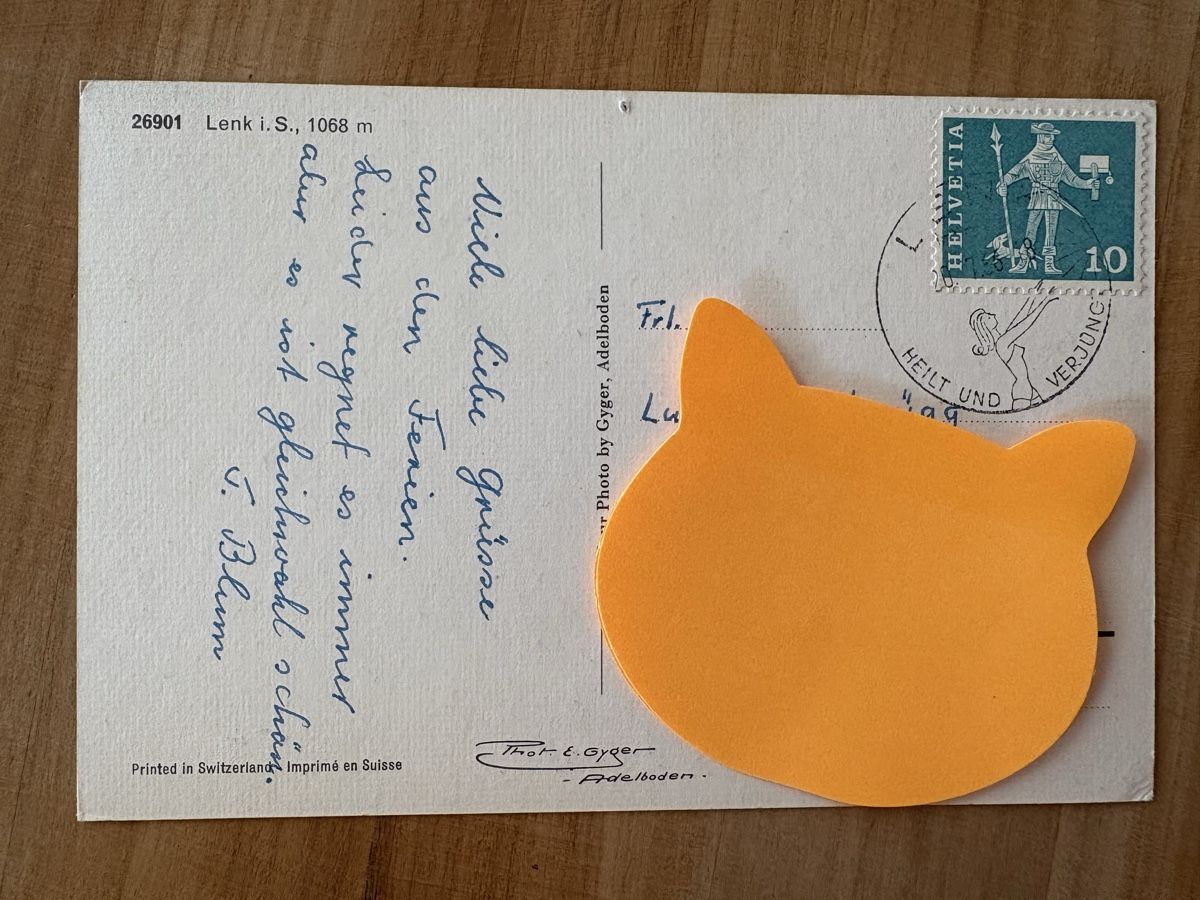 26901 Lenk i. S., 1068 m
Viele liebe Grüsse
aus den Ferien.
Leider regnet es immer
aber es ist gleichwohl schön.
F. Blum
Printed in Switzerland Imprimé en Suisse
Photo by Gyger, Adelboden
Phot. E. Gyger
- Adelboden -
HELVETIA
10
HEILT UND VERJÜNGT
Frl.